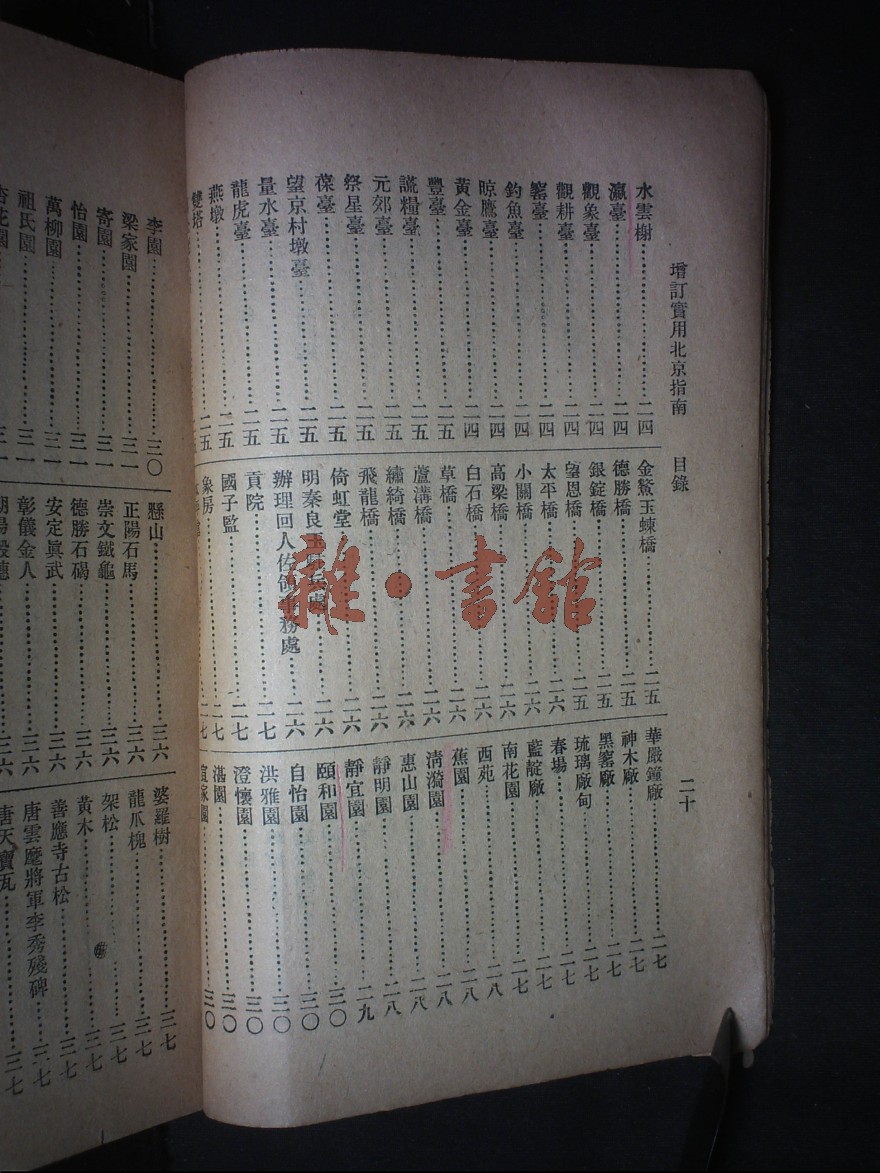 增訂實用北京指南 目錄 二十
水雲榭 二四
瀛臺 二四
觀象臺 二四
觀耕臺 二四
窰臺 二四
釣魚臺 二四
晾鷹臺 二四
黃金臺 二四
豐臺 二五
謊糧臺 二五
元郊臺 二五
祭星臺 二五
葆臺 二五
望京村墩臺 二五
量水臺 二五
龍虎臺 二五
燕墩 二五
雙塔 二五
金鰲玉蝀橋 二五
德勝橋 二五
銀錠橋 二五
望恩橋 二五
太平橋 二六
小關橋 二六
高梁橋 二六
白石橋 二六
草橋 二六
蘆溝橋 二六
繡綺橋 二六
飛龍橋 二六
倚虹堂 二六
明秦良玉駐兵處 二六
辦理回人佐領事務處 二六
貢院 二七
國子監 二七
象房 二七
華嚴鐘廠 二七
神木廠 二七
黑窰廠 二七
琉璃廠甸 二七
春場 二七
藍靛廠 二七
南花園 二七
西苑 二八
蕉園 二八
清漪園 二八
惠山園 二八
靜明園 二八
靜宜園 二九
頤和園 三〇
自怡園 三〇
洪雅園 三〇
澄懷園 三〇
湛園 三〇
宣家園 三〇
李園 三〇
梁家園 三一
寄園 三一
萬柳園 三一
怡園 三一
祖氏園 三一
杏花園 三一
懸山 三六
正陽石馬 三六
崇文鐵龜 三六
德勝石碣 三六
安定真武 三六
彰儀金人 三六
朝陽穀穗 三六
婆羅樹 三七
龍爪槐 三七
架松 三七
黃木 三七
善應寺古松 三七
唐雲麾將軍李秀殘碑 三七
唐天寶瓦 三七
雜·書館